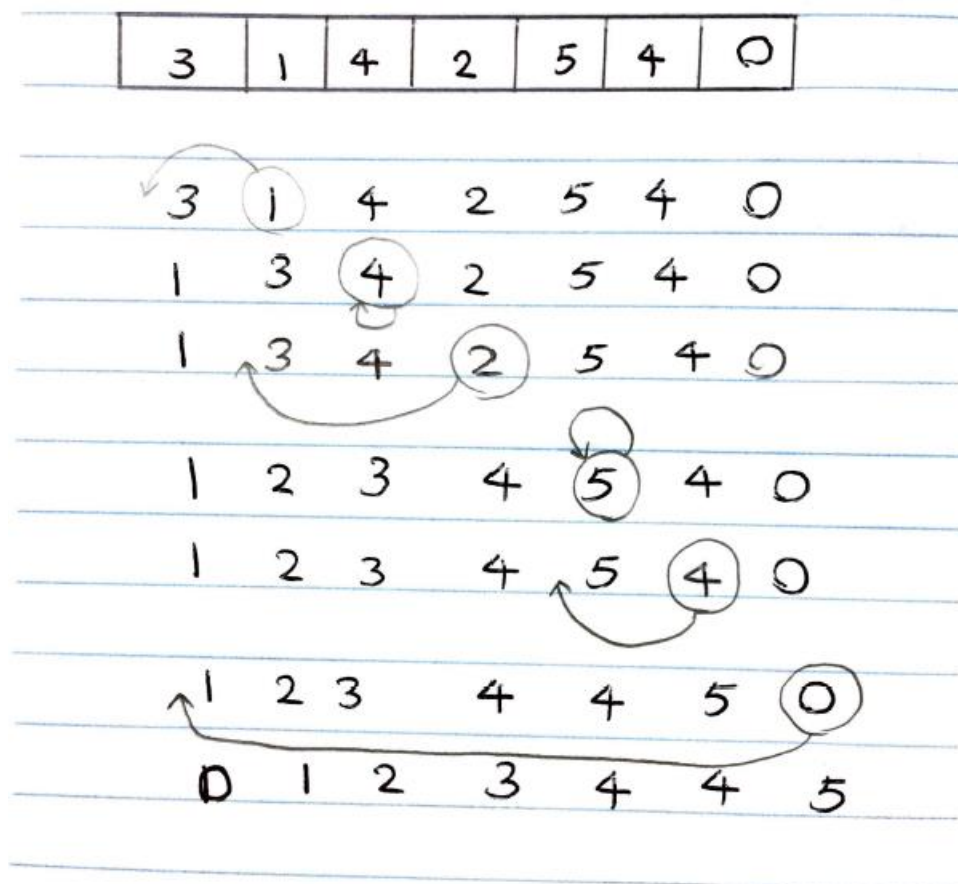 3 1 4 2 5 4 0
3 1 4 2 5 4 0
1 3 4 2 5 4 0
1 3 4 2 5 4 0
1 2 3 4 5 4 0
1 2 3 4 5 4 0
1 2 3 4 4 5 0
0 1 2 3 4 4 5